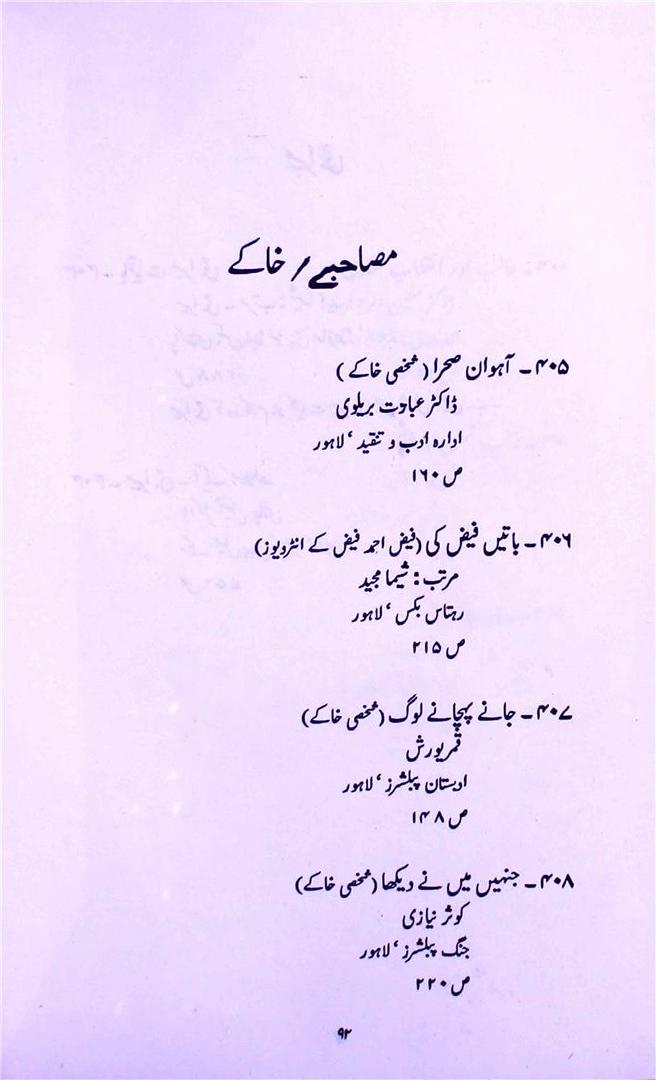 مصاحبے / خاکے
۴۰۵ ـ آہوان صحرا (شخصی خاکے)
ڈاکٹر عبادت بریلوی
ادارہ ادب و تنقید ‘ لاہور
ص ۱۶۰
۴۰۶ ـ باتیں فیض کی (فیض احمد فیض کے انٹرویوز)
مرتب : شیما مجید
رہتاس بکس ‘ لاہور
ص ۲۱۵
۴۰۷ ـ جانے پہچانے لوگ (شخصی خاکے)
قمر یورش
ادبستان پبلشرز ‘ لاہور
ص ۱۴۸
۴۰۸ ـ جنہیں میں نے دیکھا (شخصی خاکے)
کوثر نیازی
جنگ پبلشرز ‘ لاہور
ص ۲۲۰
۹۲